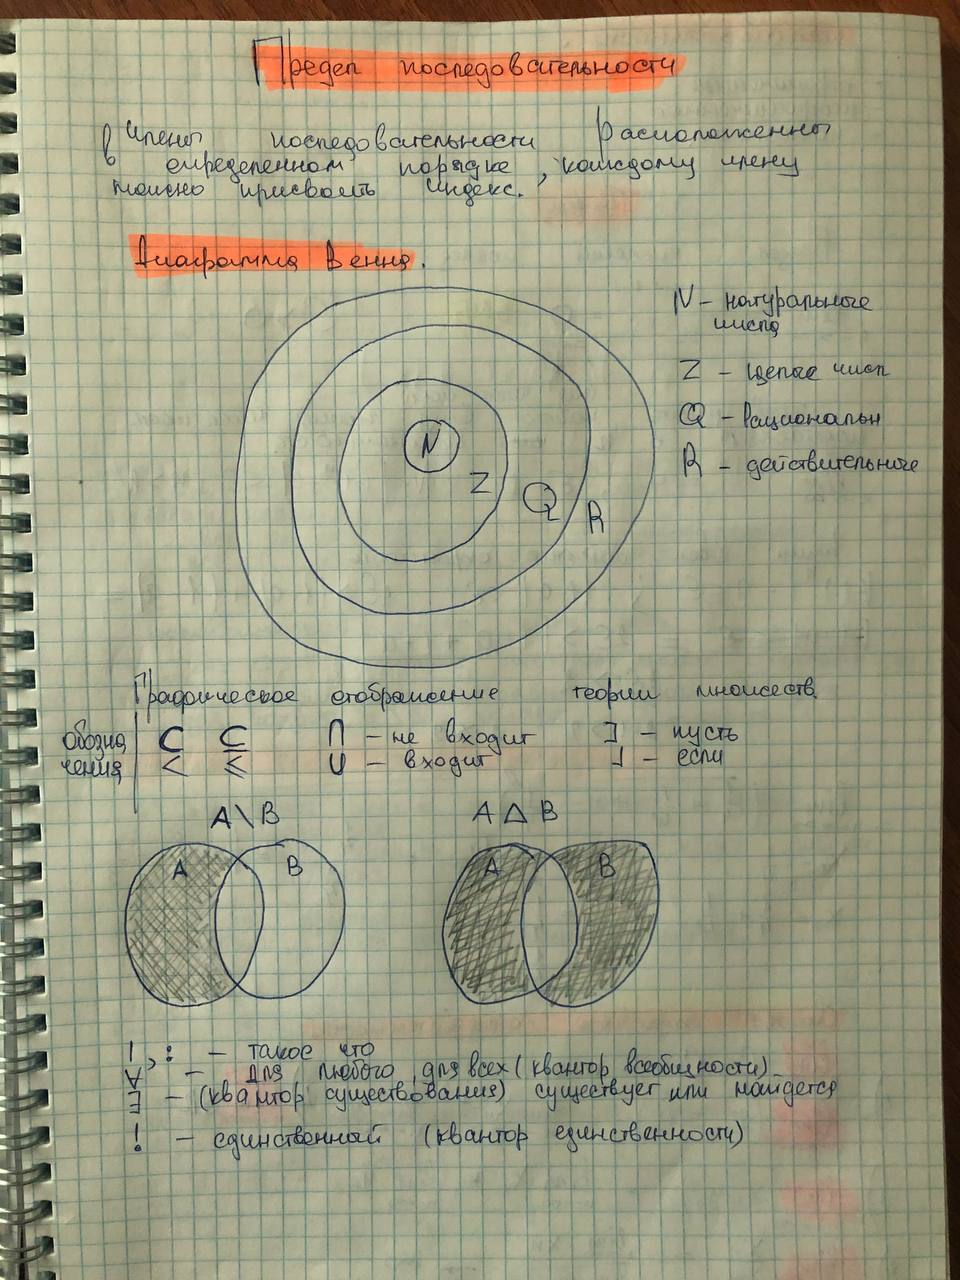 Предел последовательности
Члены последовательности расположенны
в определенном порядке, каждому члену
можно присвоить индекс.
Диаграмма Венна.
N - натуральные
числа
Z - целые числ
Q - рациональн
R - действительные
N
Z
Q
R
Графическое отображение теории множеств.
обозна ⊂ ⊆ ∩ - не входит ⊐ - пусть
чения < ≤ ∪ - входит ┘ - если
A \ B A △ B
A B A B
|, : - такое что
∀ - для любого, для всех (квантор всеобщности)
∃ - (квантор существования) существует или найдется
! - единственный (квантор единственности)